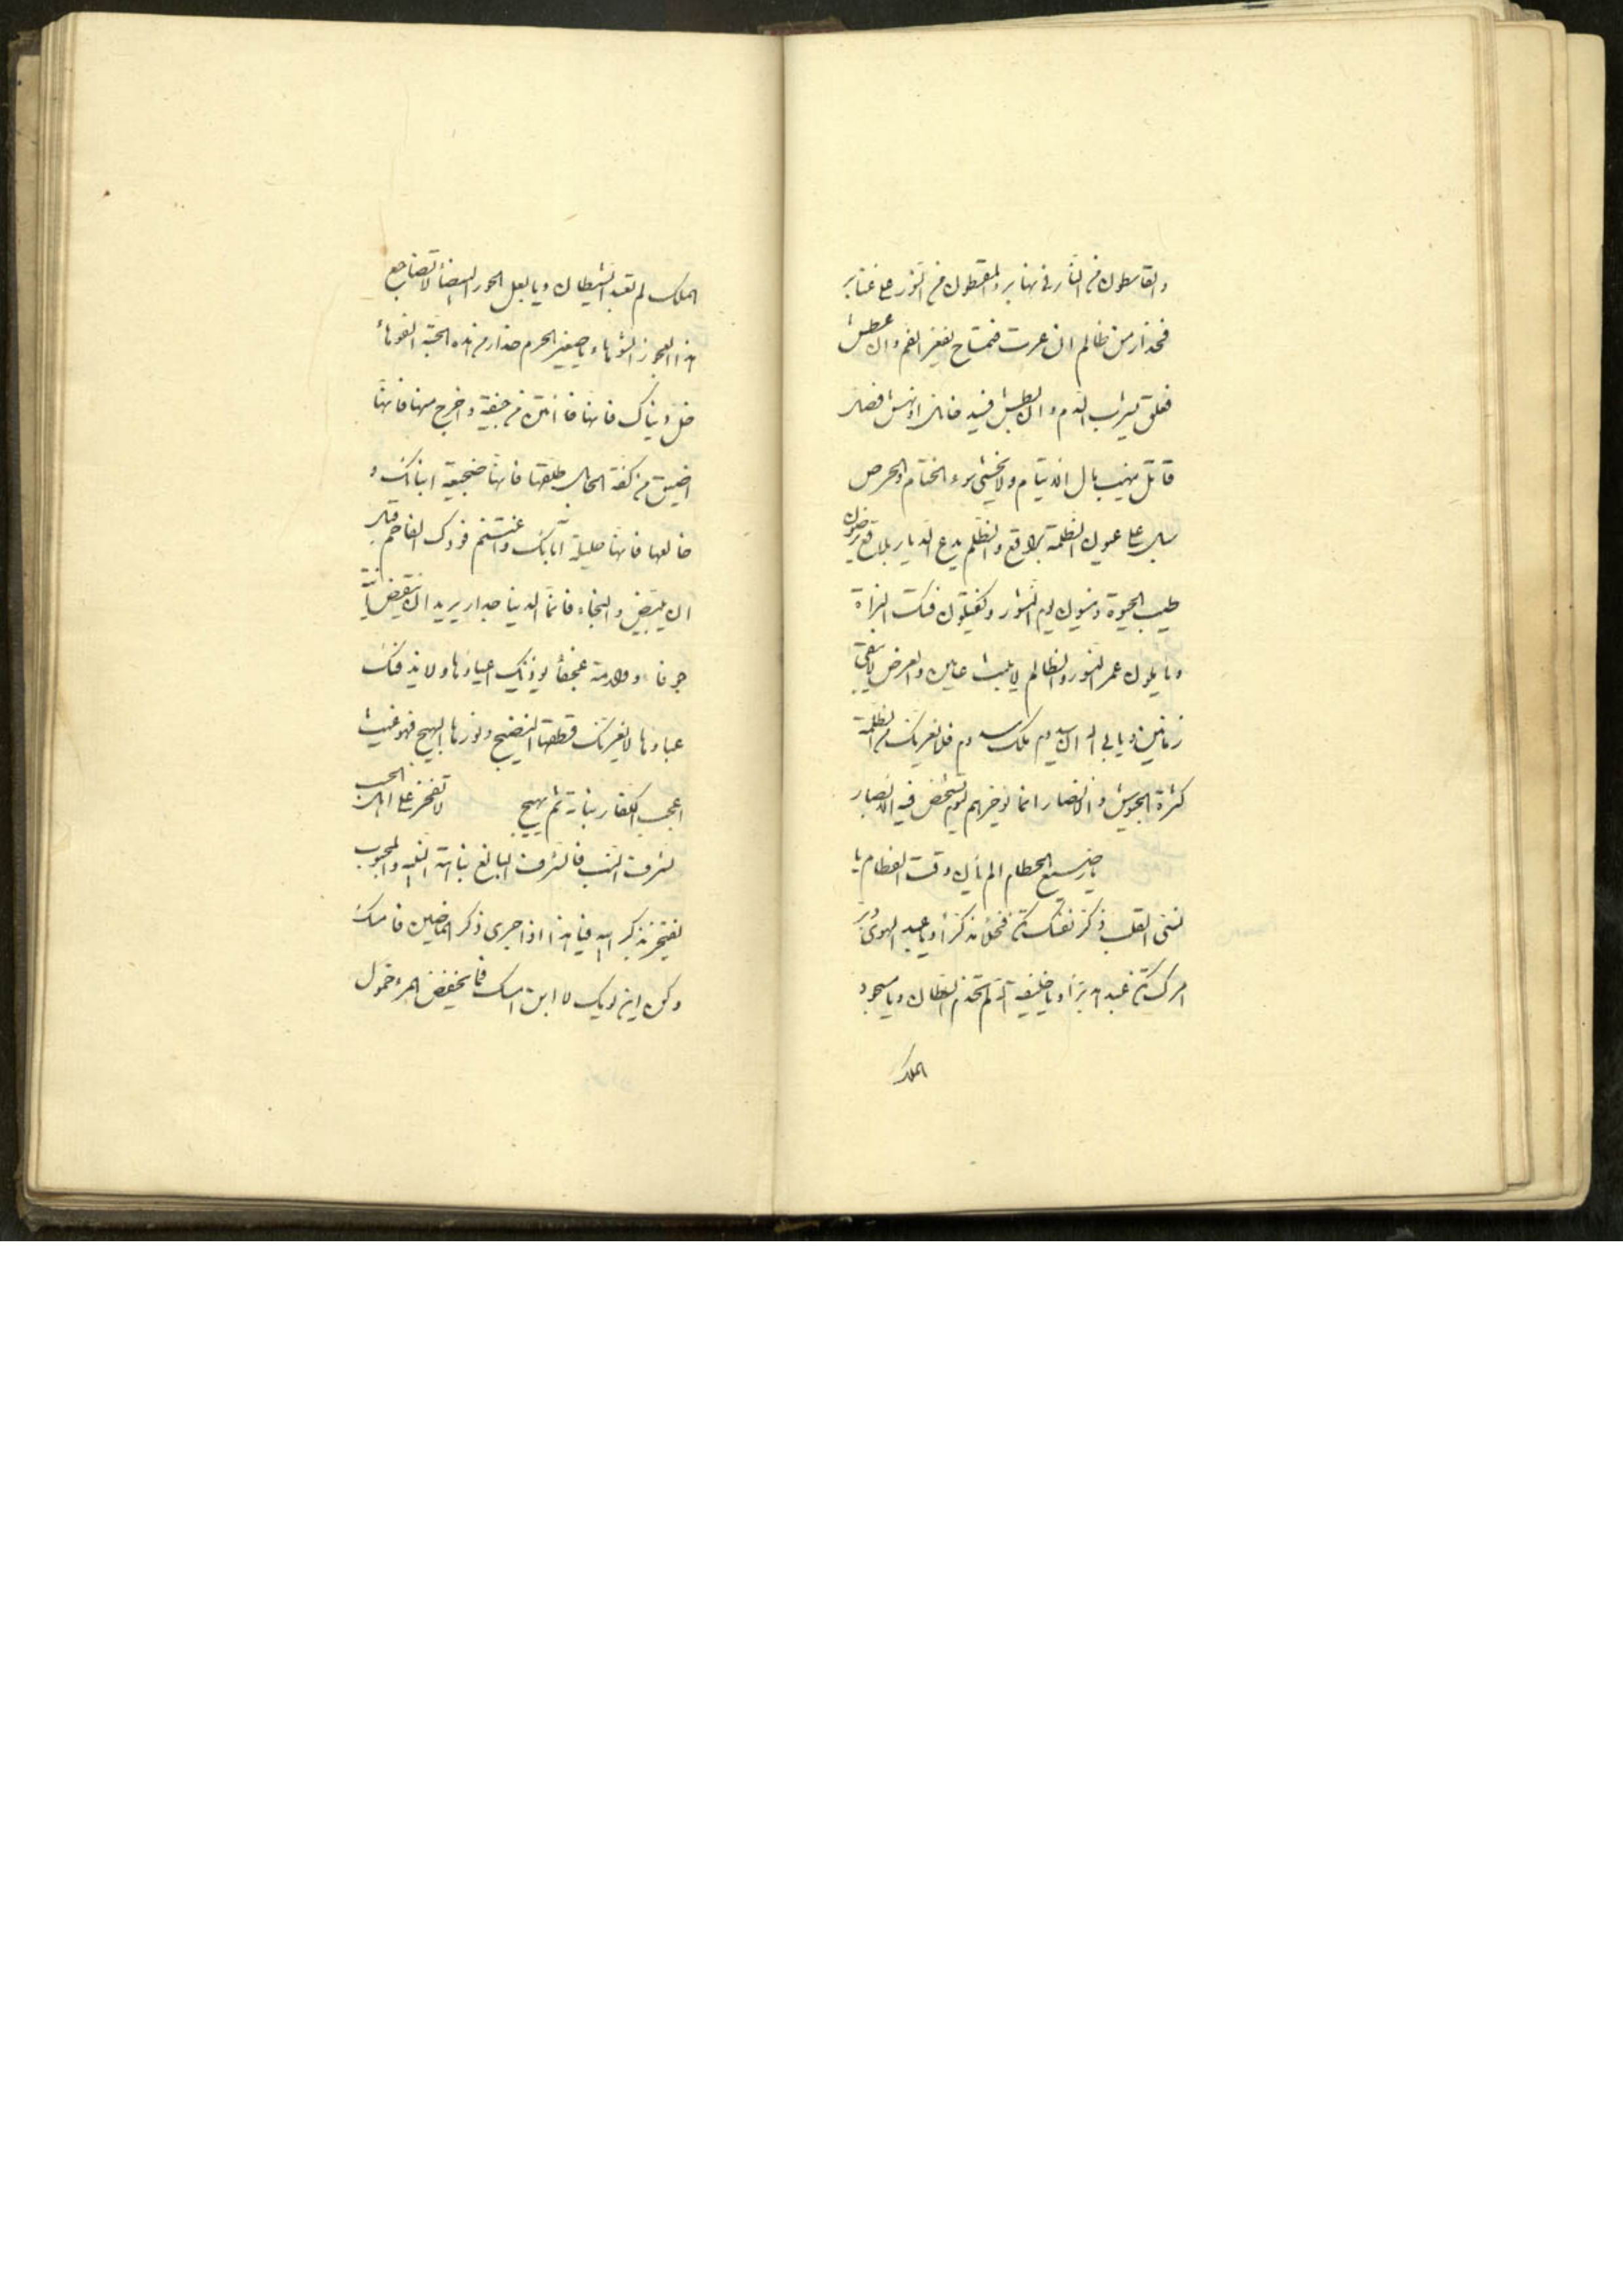 والقاسطون من النار في نهابر والمقسطون من النور على غنابر
فحذار من ظالم ان غرث فتمساح يفغر الفم وان عطش
فعلق يشرب الدم وان بطش فسيد خان او نهش فصل
قاتل ينهب مال الايتام ولا يخشى سوء الختام والحرص
على عيون الظلمة براقع والظلم يدع الديار بلاقع يرضون
طيب الحيوة وينسون يوم النشور وكفيلون فتك البزاة
وياملون عمر النسور والظالم لا يلبث عامين والعرض لا يبقى
زمانين ويابى الله ان يدوم ملك سدوم فلا يغرنك من الظلمة
كثرة الجيوش والانصار انما نوخرهم ليوم تشخص فيه الابصار
يا رضيع الحطام الم يأن وقت الفطام يا
لسنى القلب ذكر نفسك فخلا مذكرا ويا عبد الهوى دبر
امرك عبدا مدبرا ويا خليفة الله لم تخدم السلطان ويا مسجود
الملك
الملك لم تعبد الشيطان ويا بعل الحور البيضاء لا تضاجع
هذا العجوز الشوهاء ويا صيفير الحرم حذار من هذه الحية الفوهاء
خل دنياك فانها فا انتن من جيفة واخرج منها فانها
اضيق من كفة الحابل طلقها فانها ضجيعة ابنائك و
خالعها فانها حليلة آبائك واغتنم فودك الفاحم قبل
ان يبيض والنجاء فانما الدنيا جدار يريد ان ينقض
جوفاء وولادمة عجفاء يوذيك اعيادها ولا يدفك
عبادها لا يغرنك قطفها النضيج ونورها البهيج فهو غيث
اعجب الكفار نباته ثم يهيج لا تفخر على اهل الحسب
بشرف النسب فالشرف البالغ نباهة النفس والمحبوب
يفتخر بذكر ابيه فيا هذا اذا جرى ذكر الماضين فامسك
وكن ابن يومك لا ابن امسك فما يخفض المرء خمول